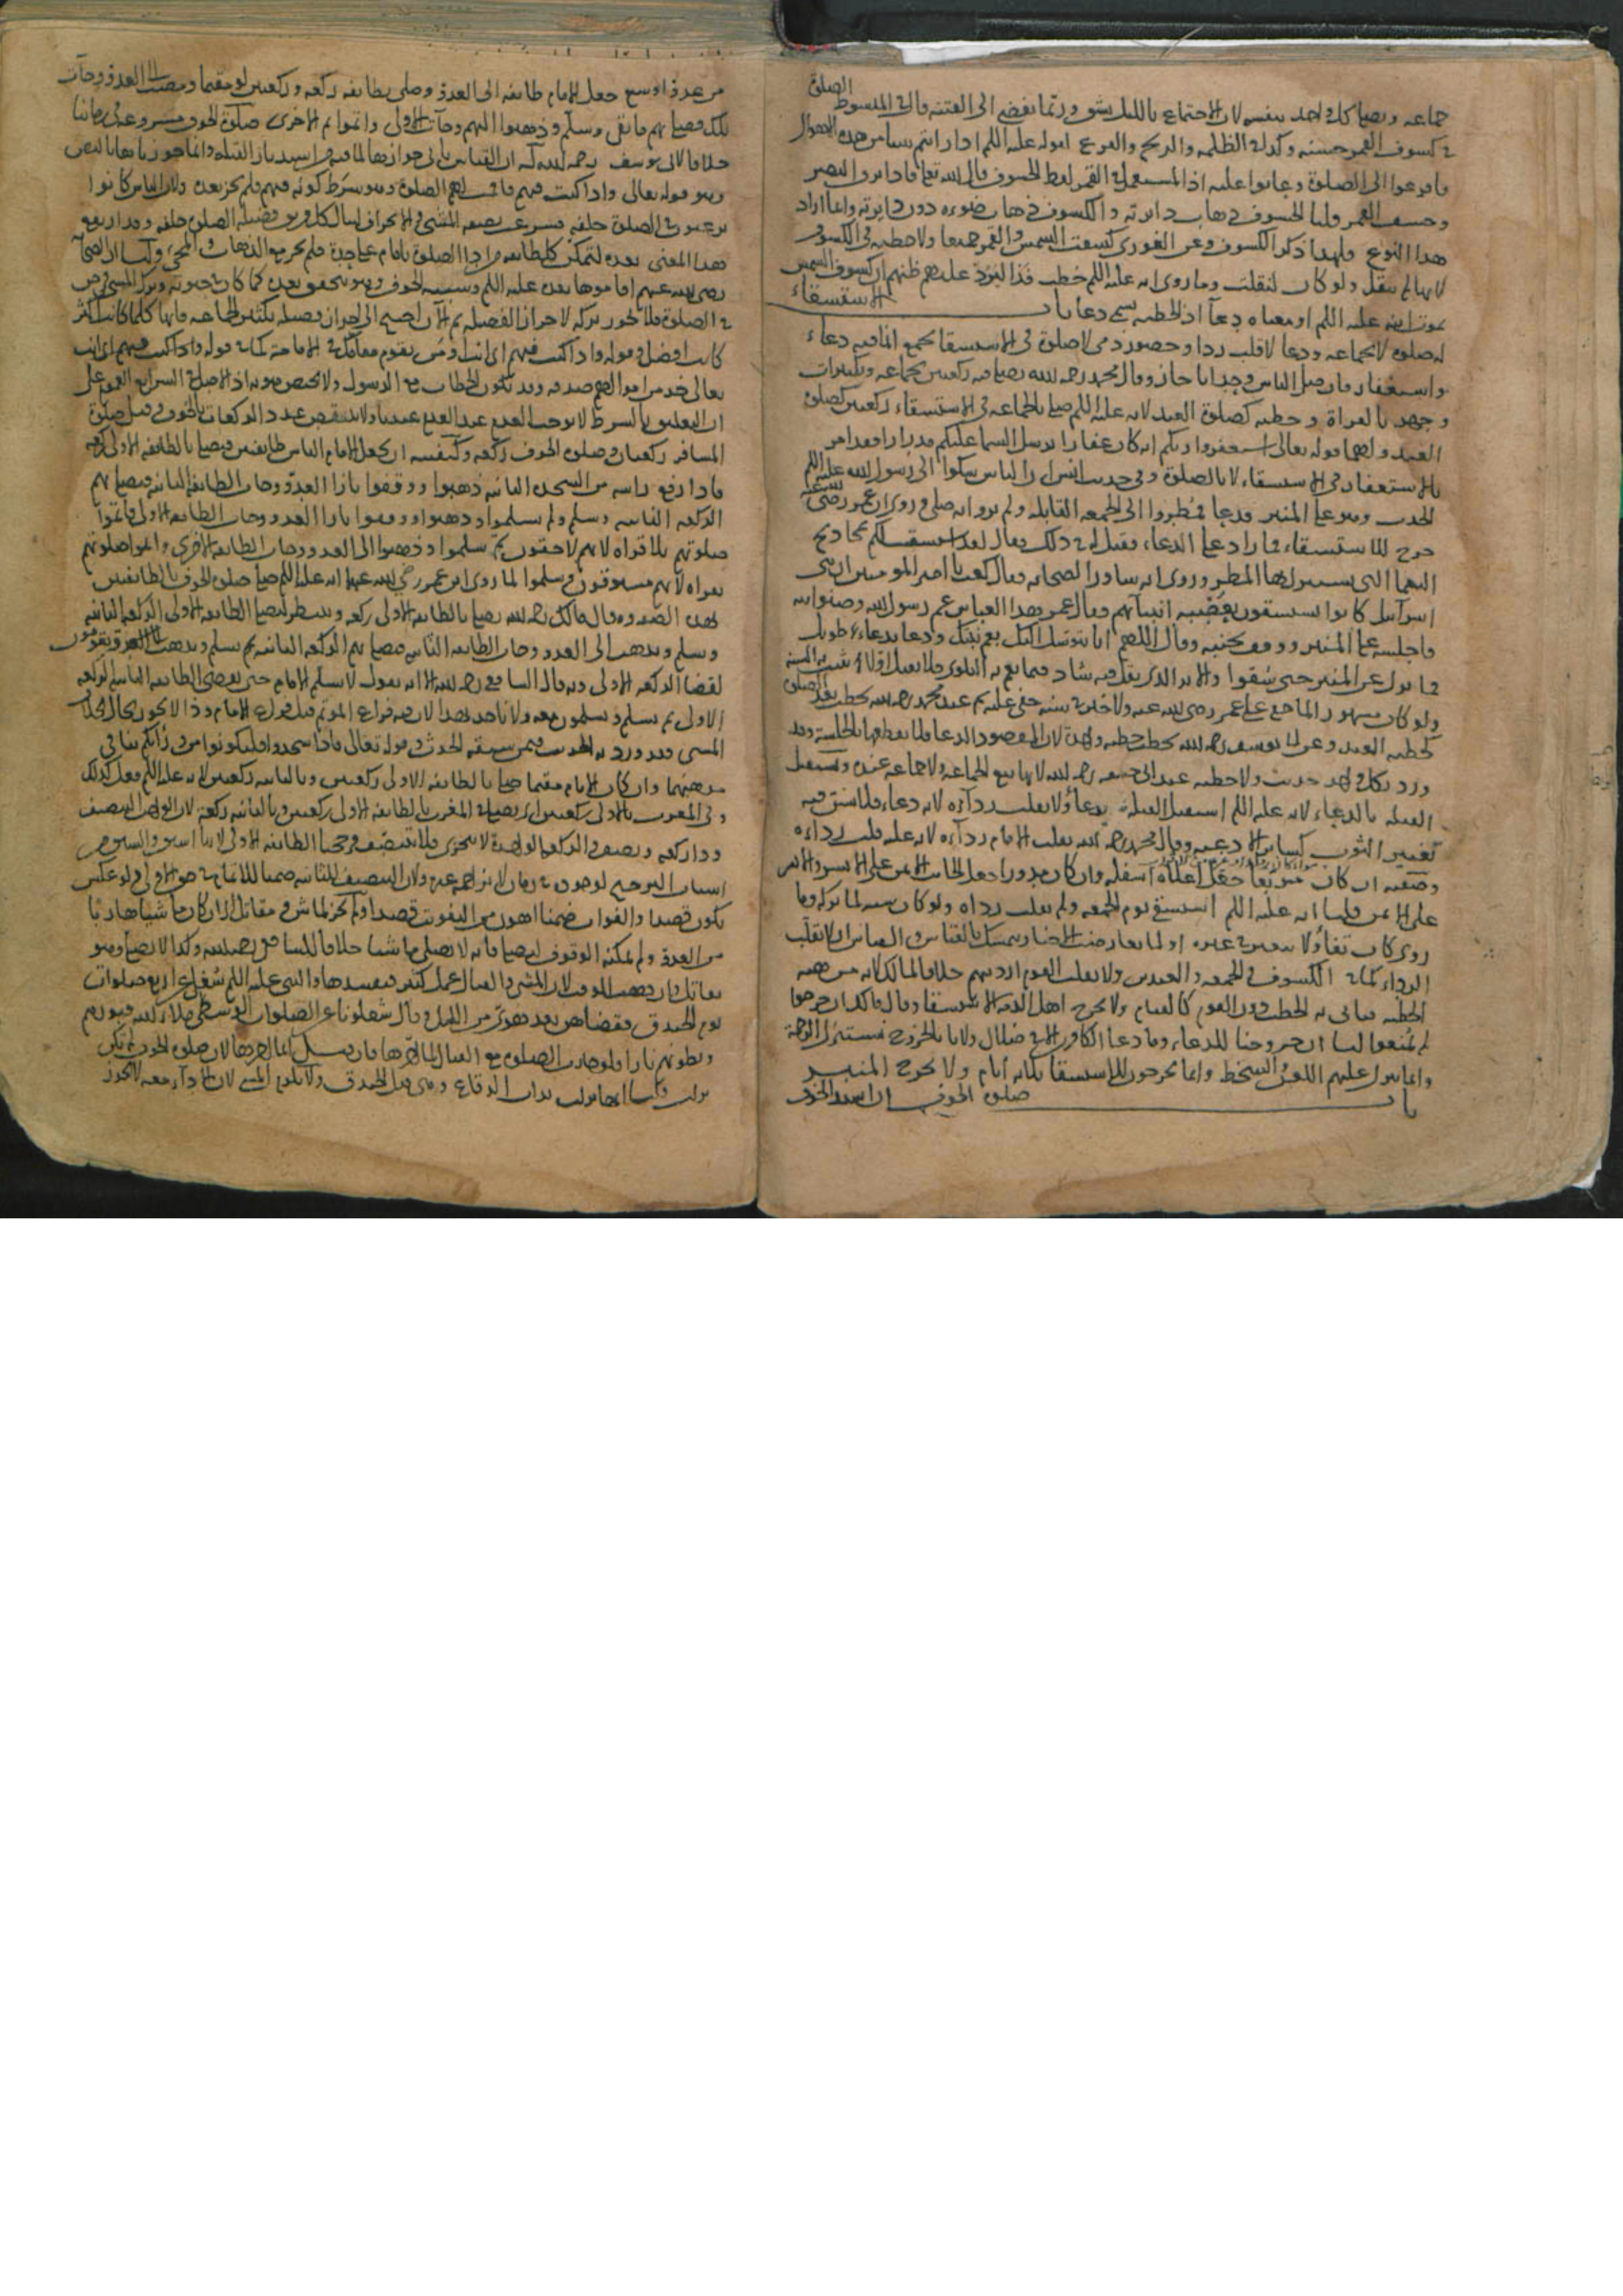 جماعه ويصلى كل واحد بنفسه لان الاجتماع بالليل يشق وربما يفضى الى الفتنه قال فى المبسوط الصلوة
فى كسوف القمر حسنه وكذلك الظلمه والريح والفزع لقوله عليه اللم اذا رايتم شيا من هذه الاهوال
فافزعوا الى الصلوة وعابوا عليه اذ المستعمل فى القمر لفظ الخسوف قال الله تعالى فاذا برق البصر
وخسف القمر قلنا الخسوف ذهاب دايرته والكسوف ذهاب ضوءه دون دايرته وانما اراد
هذا النوع فلهذا ذكر الكسوف وعن الغورى كسفت الشمس والقمر جميعا ولا خطبه فى الكسوف
لانها لم تنقل ولو كان لنقلت وما روى انه عليه اللم خطب فذا ليرد عليهم ظنهم ان كسوف الشمس
بموت ابنه عليه اللم او معناه دعا اذ الخطبه تسمى دعا باب الاستسقاء
له صلوه لا بجماعه ودعا لا قلب ردا وحضور ذمى لا صلوة فى الاستسقا بجمع انما فيه دعاء
واستغفار فان صلى الناس وحدانا جاز وقال محمد رحمه الله يصلى فيه ركعتين بجماعه وتكبيرات
وجهر بالقراة وخطبه كصلوة العيد لانه عليه اللم صلى بالجماعه فى الاستسقاء ركعتين كصلوة
العيد ولهما قوله تعالى استغفروا ربكم انه كان غفارا يرسل السما عليكم مدرارا فقد امر
بالاستغفار فى الاستسقاء لا بالصلوة وفى حديث انس ان الناس شكوا الى رسول الله عليه اللم
الجدب وهو على المنبر فدعا فمطروا الى الجمعه القابله ولم يرو انه صلى وروى ان عمر رضى الله عنه
خرج للاستسقاء فما زاد على الدعاء فقيل له فى ذلك فقال لقد استسقيت لكم بمجاديح
السما التى يستنزل بها المطر وروى انه شاور الصحابه فقال كعب يا امير المومنين ان بنى
اسرائيل كانوا يستسقون بعصبه انبيائهم فقال عمر هذا العباس عم رسول الله وصنو ابيه
فاجلسه على المنبر ووقف بجنبه وقال اللهم انا نتوسل اليك بعم نبيك ودعا بدعاء طويل
فما نزل عن المنبر حتى سقوا والاثر الذى نقل فيه شاذ فيما يعم به البلوى فلا يقبل اذ لا تثبت به السنه
ولو كان مشهورا لما خفى على عمر رضى الله عنه ولا خير فى سنه خفى عليه ثم عند محمد رحمه الله يخطب بعد الصلوة
كخطبه العيد وعن ابى يوسف رحمه الله يخطب خطبه واحدة لان المقصود الدعا فلا يقطعها بالجلسة وقد
ورد بكل واحد حديث ولا خطبه عند ابى حنيفه رحمه الله لانها تبع للجماعه ولا جماعه عنده ويستقبل
القبله بالدعاء لانه عليه اللم استقبل القبلة يدعا ولا يقلب رداءه لانه دعاء فلا يسن فيه
تغيير الثوب كساير الادعيه وقال محمد رحمه الله يقلب الامام رداءه لانه عليه قلب رداءه
وصفته ان كان مربعا جعل اعلاه اسفله وان كان مدورا جعل الجانب الايمن على الايسر والايسر
على الايمن قلنا انه عليه اللم استسقى يوم الجمعه ولم يقلب رداه ولو كان سنه لما تركه وما
روى كان تفاؤلا
الرداء كما فى الكسوف والجمعه والعيدين ولا يقلب القوم ارديتهم خلافا لمالك لانه من هيه
الخطبه فياتى به الخطيب دون القوم كالقيام ولا يخرج اهل الذمه الاستسقا وقال مالك ان خرجوا
لم يمنعوا لنا ان خروجنا للدعاء وما دعا الكافرين الا فى ضلال ولانا بالخروج نستنزل الرحمة
وانما ينزل عليهم اللعن والسخط وانما يخرجون للاستسقا ثلاثه ايام ولا يخرج المنبر
باب صلوة الخوف ان اشتد الخوف
من عدو او سبع جعل الامام طائفه الى العدو وصلى بطائفه ركعه وركعتين لو مقيما ومضت الى العدو وجات
تلك فصلى بهم ما بقى وسلم وذهبوا اليهم وجات الاولى واتموا ثم الاخرى صلوة الخوف مشروعة فى زماننا
خلافا لابى يوسف رحمه الله له ان القياس يابى جوازها لما فيه من استدبار القبله وانما جوزناها بالنص
وهو قوله تعالى واذا كنت فيهم فاقمت لهم الصلوة وهو شرط كونه فيهم فلم يجز بعده ولان الناس كانوا
يرغبون فى الصلوة خلفه فشرعت بصفه المشى والانحراف لينال كل فريق فضيله الصلوة خلفه وقد ارتفع
هذا المعنى بعده لتمكن كل طائفه من ادا الصلوة بامام على حدة فلم يجز مع الذهاب والمجى ولنا ان الصحابه
رضى الله عنهم اقاموها بعده عليه اللم وسببه الخوف وهو يتحقق بعده كما كان فى حيوته وترك المشى فرض
فى الصلوة فلا يجوز تركه لاحراز الفضيله ثم الان احتيج الى احراز فضيله تكثير الجماعه فانها كلما كانت اكثر
كانت افضل وقوله واذا كنت فيهم اى انت او من يقوم مقامك فى الامامه كما فى قوله
تعالى خذ من اموالهم صدقه وقد يكون الخطاب مع الرسول ولا يختص هو به اذ الاصل فى الشرايع العموم على
ان التعليق بالشرط لا يوجب العدم عند العدم عندنا ولا ينتقص عدد الركعات بالخوف وقيل صلوة
المسافر ركعتان وصلوة الخوف ركعه وكيفيته ان يجعل الامام الناس طايفتين فيصلى بالطائفه الاولى ركعه
فاذا رفع راسه من السجده الثانيه ذهبوا ووقفوا بازا العدو وجات الطائفه الثانيه فيصلى بهم
الركعه الثانيه وسلم ولم يسلموا وذهبوا ووقفوا بازا العدو وجات الطائفه الاولى فاتموا
صلوتهم بلا قراة لانهم لاحقون ثم سلموا وذهبوا الى العدو وجات الطائفه الاخرى واتموا صلوتهم
بقراة لانهم مسبوقون وسلموا لما روى ابن عمر رضى الله عنهما انه عليه اللم صلى صلوة الخوف بالطائفتين
بهذه الصفه وقال مالك رحمه الله يصلى بالطائفه الاولى ركعه وينتظر ليصلى الطائفه الاولى الركعه الثانيه
وسلم ويذهب الى العدو وجات الطائفه الثانيه فيصلى بهم الركعه الثانيه ثم يسلم ويذهب الى العدو ويقومون
لقضا الركعه الاولى وبه قال الشافعى رحمه الله الا انه يقول لا يسلم الامام حتى يقضى الطائفه الثانيه الركعه
الاولى ثم يسلم ويسلمون معه ولا ناخذ بهذا لان فيه فراغ الموتم قبل فراغ الامام وذا لا يجوز بحال بخلاف
المشى فقد ورد به الحديث فيمن سبقه الحدث وقوله تعالى فاذا سجدوا فليكونوا من ورائكم ينافى
مذهبهما وان كان الامام مقيما صلى بالطائفه الاولى ركعتين وبالثانيه ركعتين لانه عليه اللم فعل كذلك
وفى المغرب بالاولى ركعتين اى يصلى المغرب بالطائفه الاولى ركعتين وبالثانيه ركعة
وذا ركعه ونصف والركعه الواحدة لا تتجزى فلا تنتصف فرجحنا الطائفه الاولى
اسباب الترجيح
تكون قصدا والفوات ضمنا اهون من التفويت قصدا ولم يجز لماش ومقاتل اذا كان ماشيا هاربا
من العدو ولم يمكنه الوقوف ليصلى فانه لا يصلى ماشيا خلافا للشافعى رحمه الله وكذا لا يصلى وهو
يقاتل وان ذهب الوقت لان المشى والقتال عمل كثير فيفسدها والنبى عليه اللم شغل عن اربع صلوات
يوم الخندق فقضاهن بعد هوى من الليل وقال شغلونا عن الصلوات الوسطى ملا الله قبورهم
وبطونهم نارا فلو جازت الصلوة مع القتال لما اخرها فان قيل انما اخرها لان صلوة الخوف لم تكن
نزلت قلنا انها نزلت بذات الرقاع وهى قبل الخندق